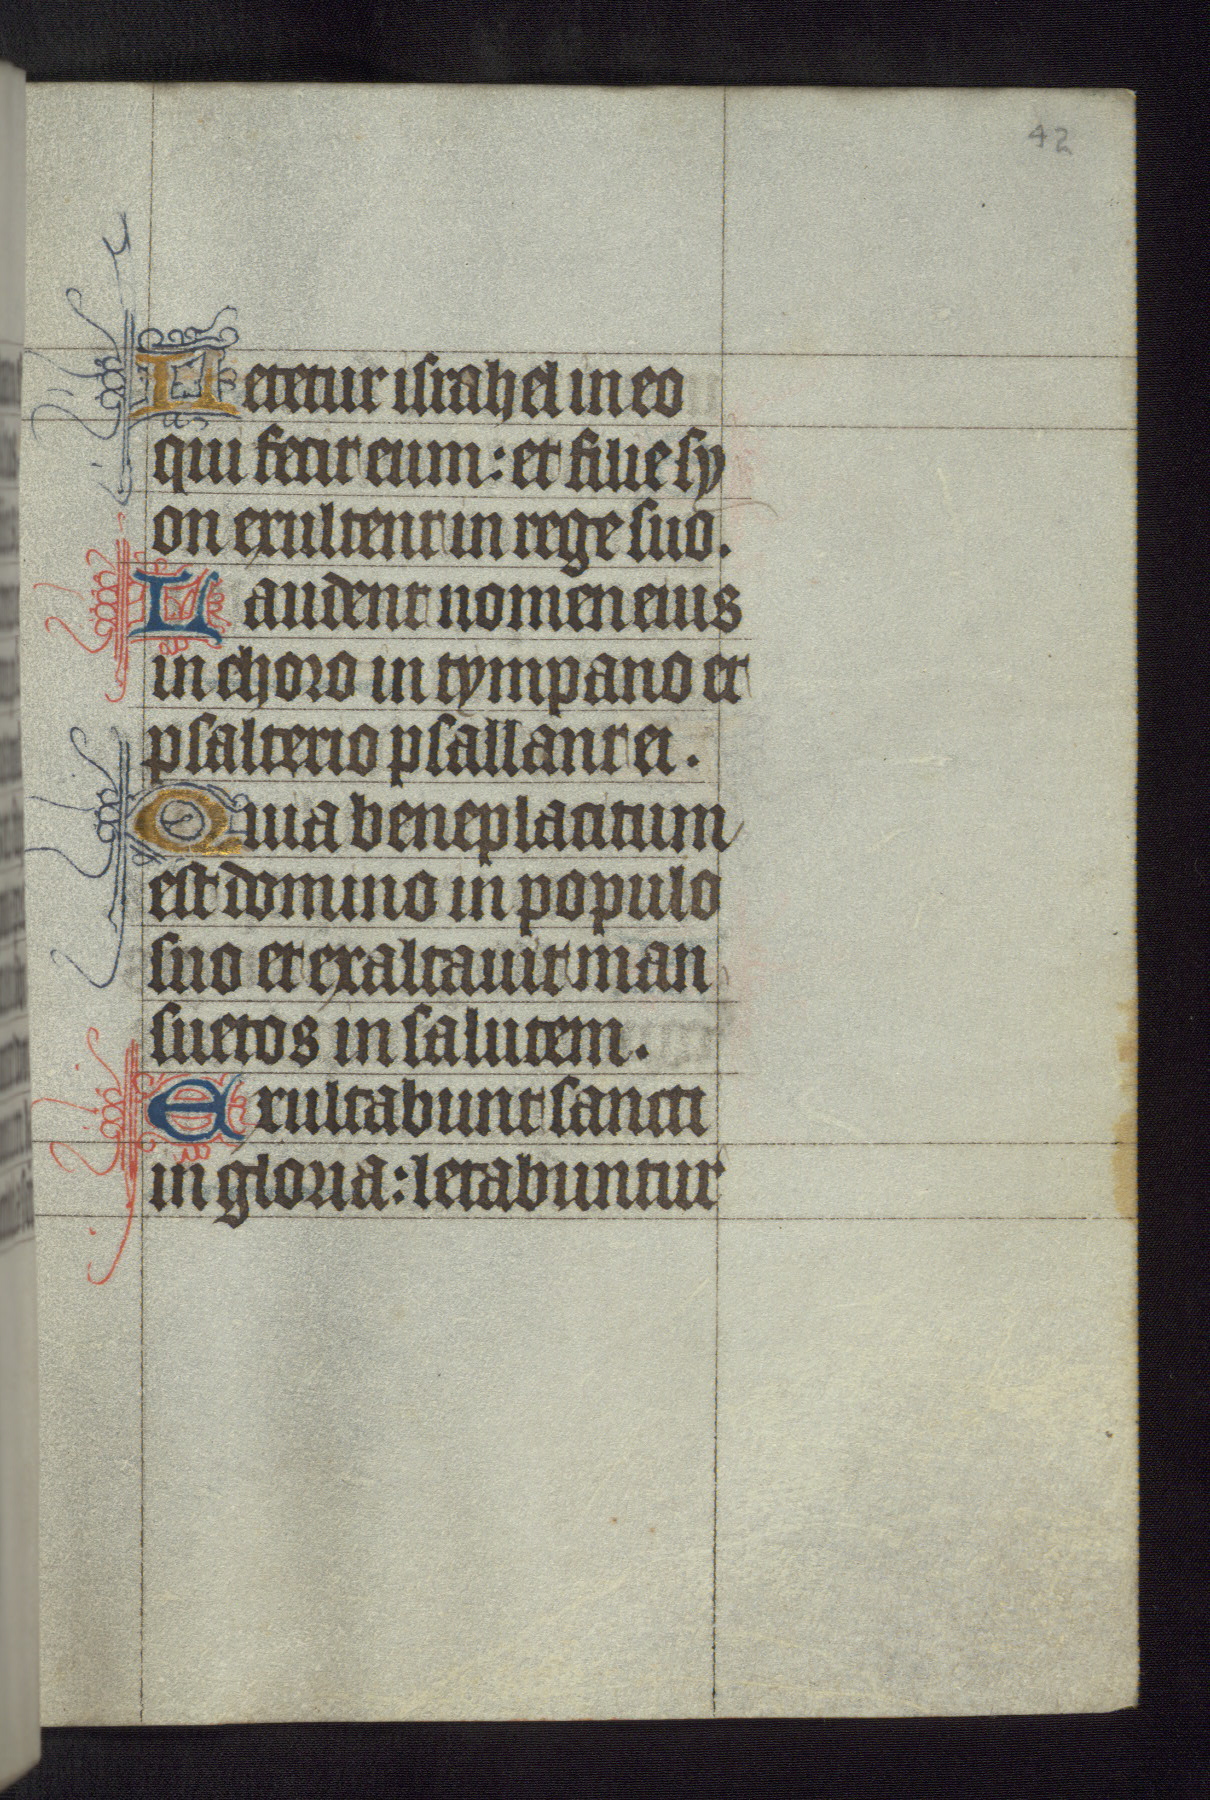 42
Letetur israhel in eo
qui fecit eum: et filie sy
on exultent in rege suo.
Laudent nomen eius
in choro in tympano et
psalterio psallant ei.
Quia beneplacitum
est domino in populo
suo et exaltauit man
suetos in salutem.
Exultabunt sancti
in gloria: letabuntur